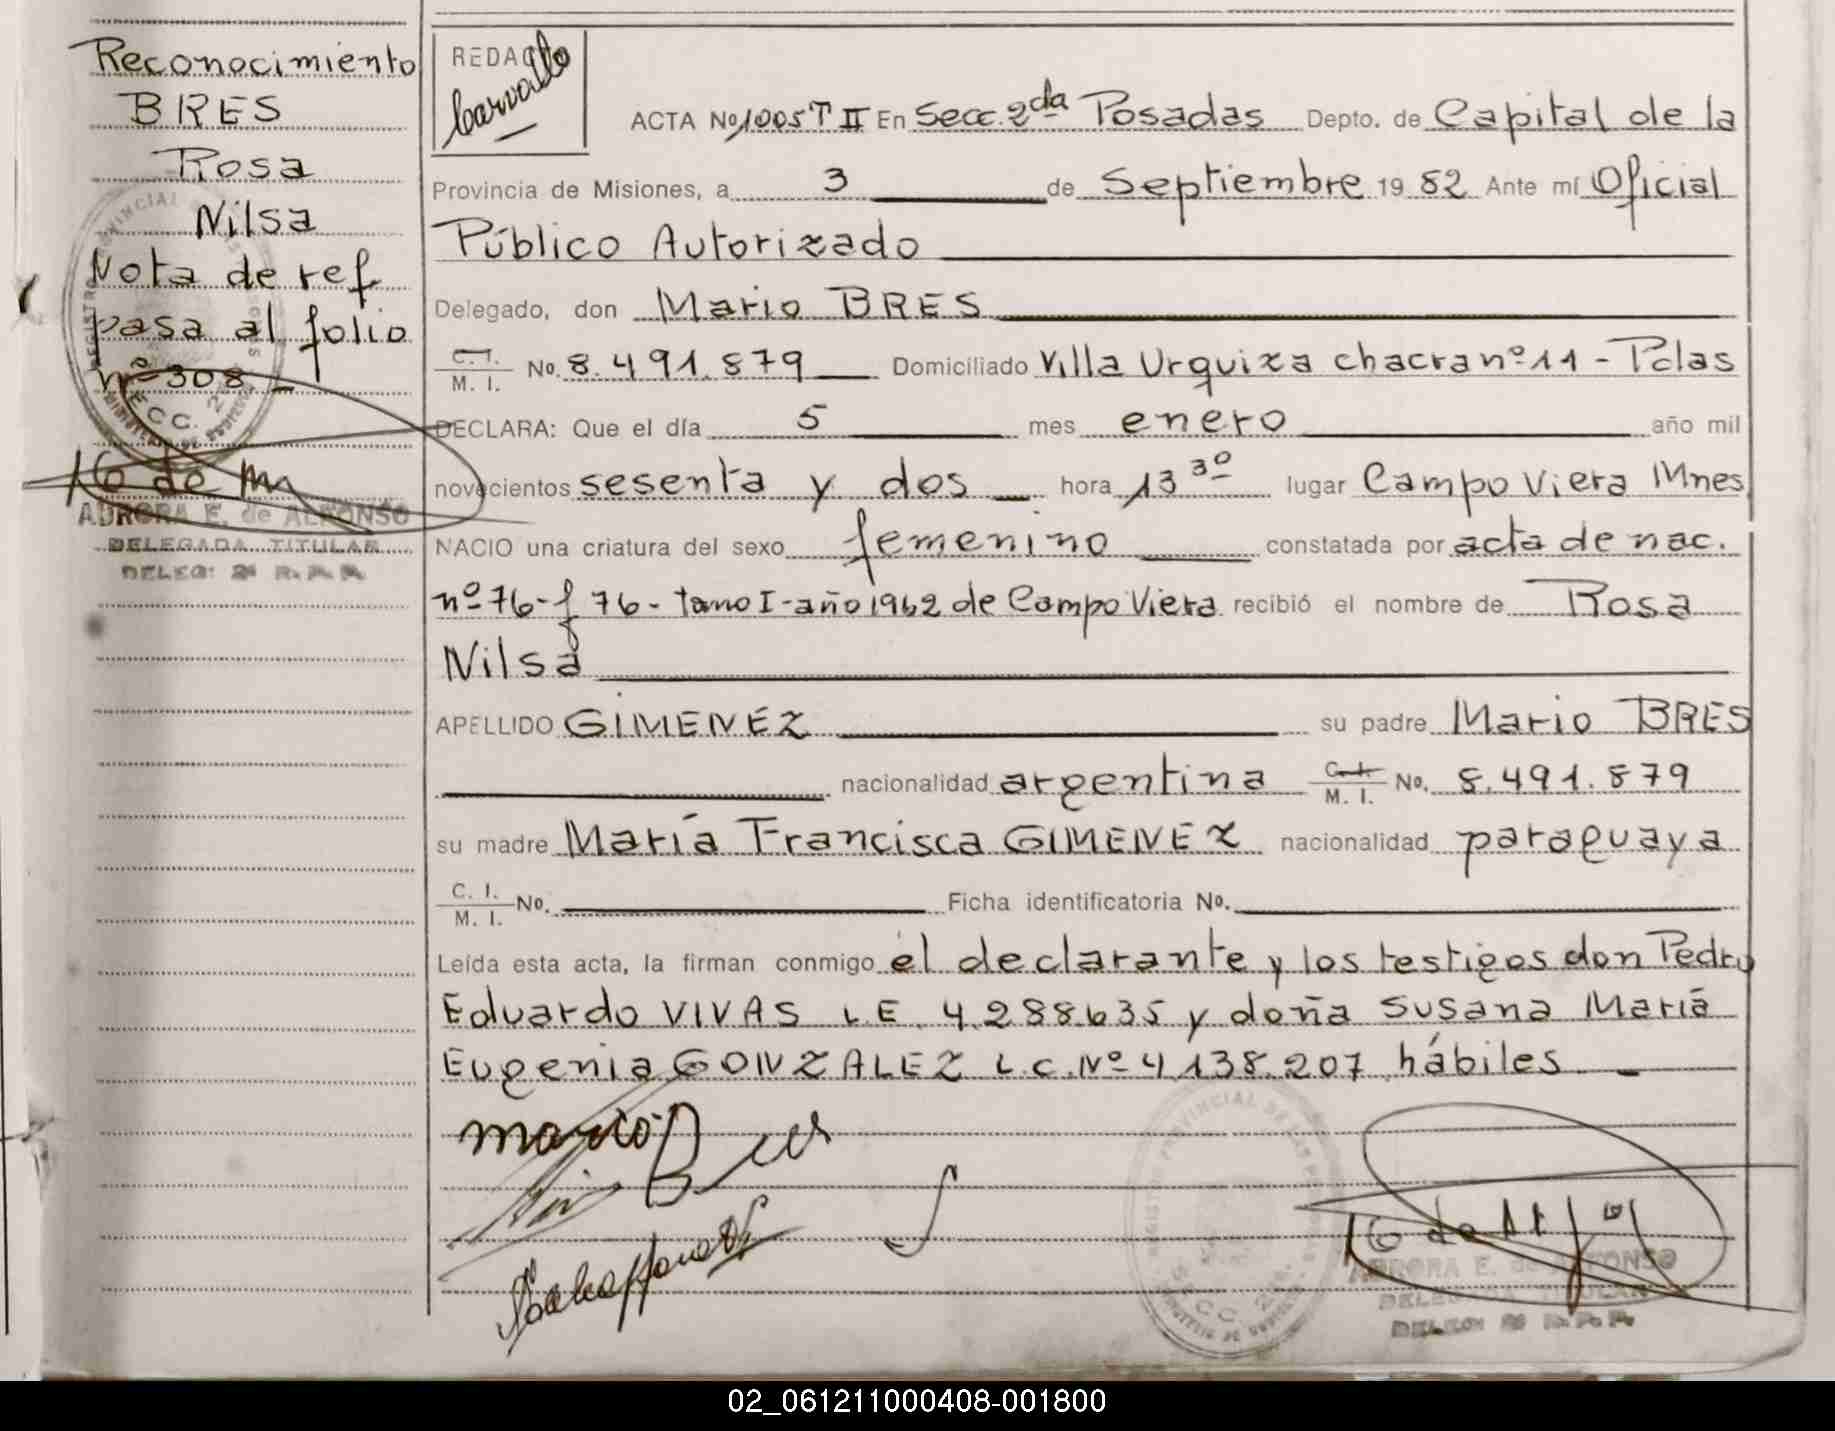 Reconocimiento
BRES
Rosa
Nilsa
Nota de ref
pasa al folio
nº 308 -
AURORA E. de ALFONSO
DELEGADA TITULAR
DELEG: 2ª R. P. P.
REDACTO
Carvallo
ACTA Nº 1005 T II En Secc. 2da Posadas Depto. de Capital de la
Provincia de Misiones, a 3 de Septiembre 19 82 Ante mí Oficial
Público Autorizado
Delegado, don Mario BRES
C. I. / M. I. No. 8.491.879 Domiciliado Villa Urquiza chacra nº 11 - Pdas
DECLARA: Que el día 5 mes enero año mil
novecientos sesenta y dos hora 13 30 lugar Campo Viera Mnes
NACIO una criatura del sexo femenino constatada por acta de nac.
nº 76 - f 76 - tomo I - año 1962 de Campo Viera recibió el nombre de Rosa
Nilsa
APELLIDO GIMENEZ su padre Mario BRES
nacionalidad argentina C. I. / M. I. No. 8.491.879
su madre María Francisca GIMENEZ nacionalidad paraguaya
C. I. / M. I. No. Ficha identificatoria No.
Leída esta acta, la firman conmigo el declarante y los testigos don Pedro
Eduardo VIVAS L.E. 4.288.635 y doña Susana María
Eugenia GONZALEZ L.C. Nº 4.138.207 hábiles
mario Bres
REGISTRO PROVINCIAL DE LAS PERSONAS
SECC. 2da.
AURORA E. de ALFONSO
DELEGADA TITULAR
DELEG: 2ª R. P. P.
02_061211000408-001800